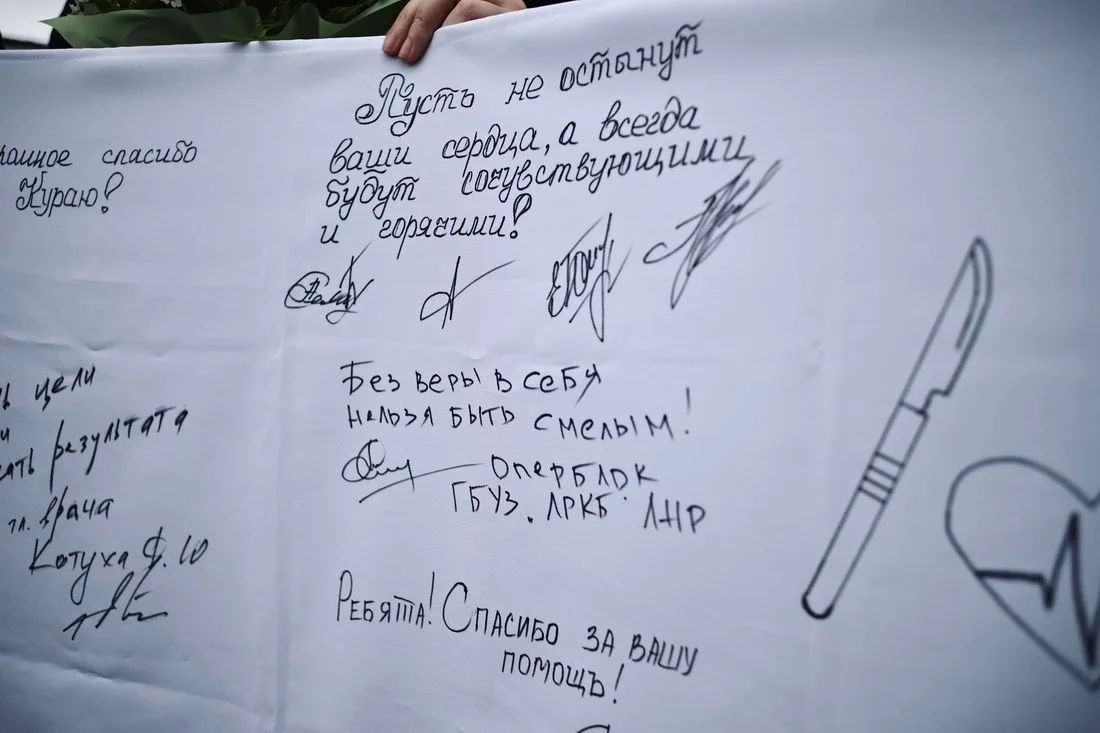 спасибо
Кураю!
цели
результата
гл. врача
Котуха Ф. Ю
Пусть не остынут
ваши сердца, а всегда
будут сочувствующими
и горячими!
Без веры в себя
нельзя быть смелым!
Оперблок
ГБУЗ. ЛРКБ ЛНР
Ребята! Спасибо за вашу
помощь!